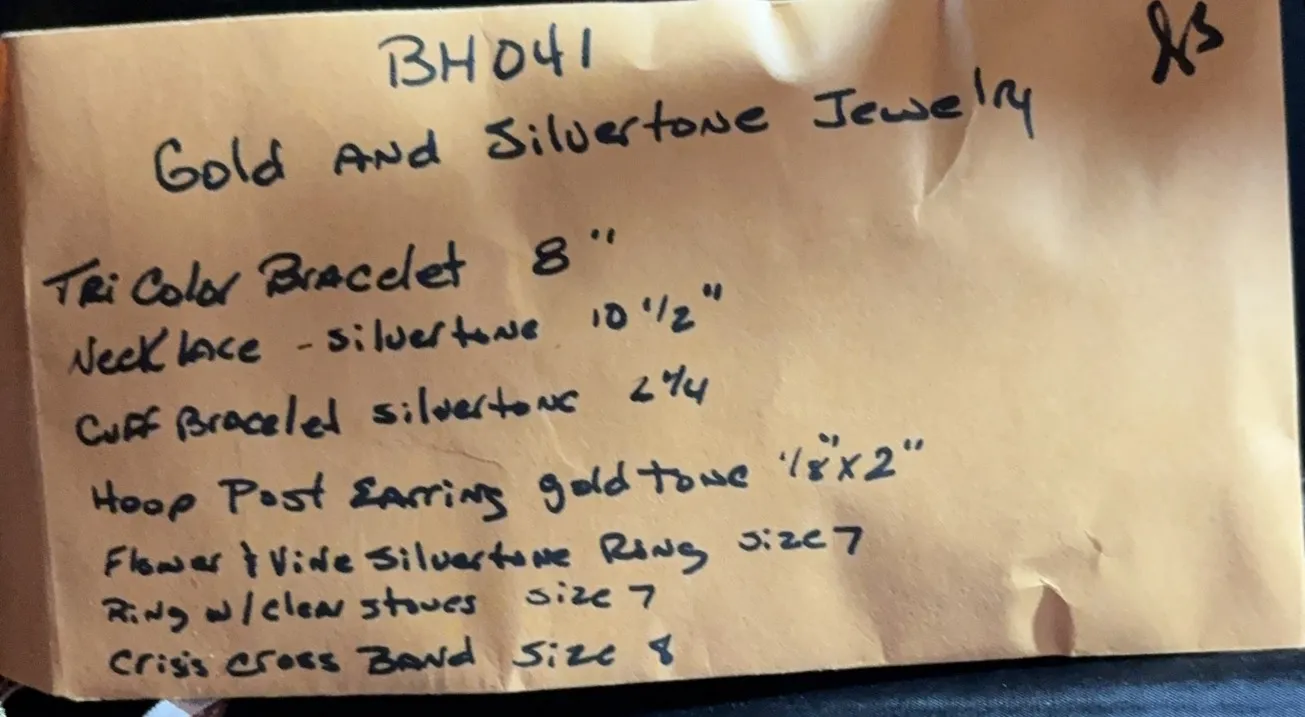 BH041
Gold AND Silvertone Jewelry
TRi Color Bracelet 8"
Necklace - silvertone 10 1/2"
Cuff Bracelet silvertone 2
Hoop Post Earring gold tone 1/8" x 2"
Flower & Vine Silvertone Ring size 7
Ring w/clear stones size 7
Criss cross BAND Size 8